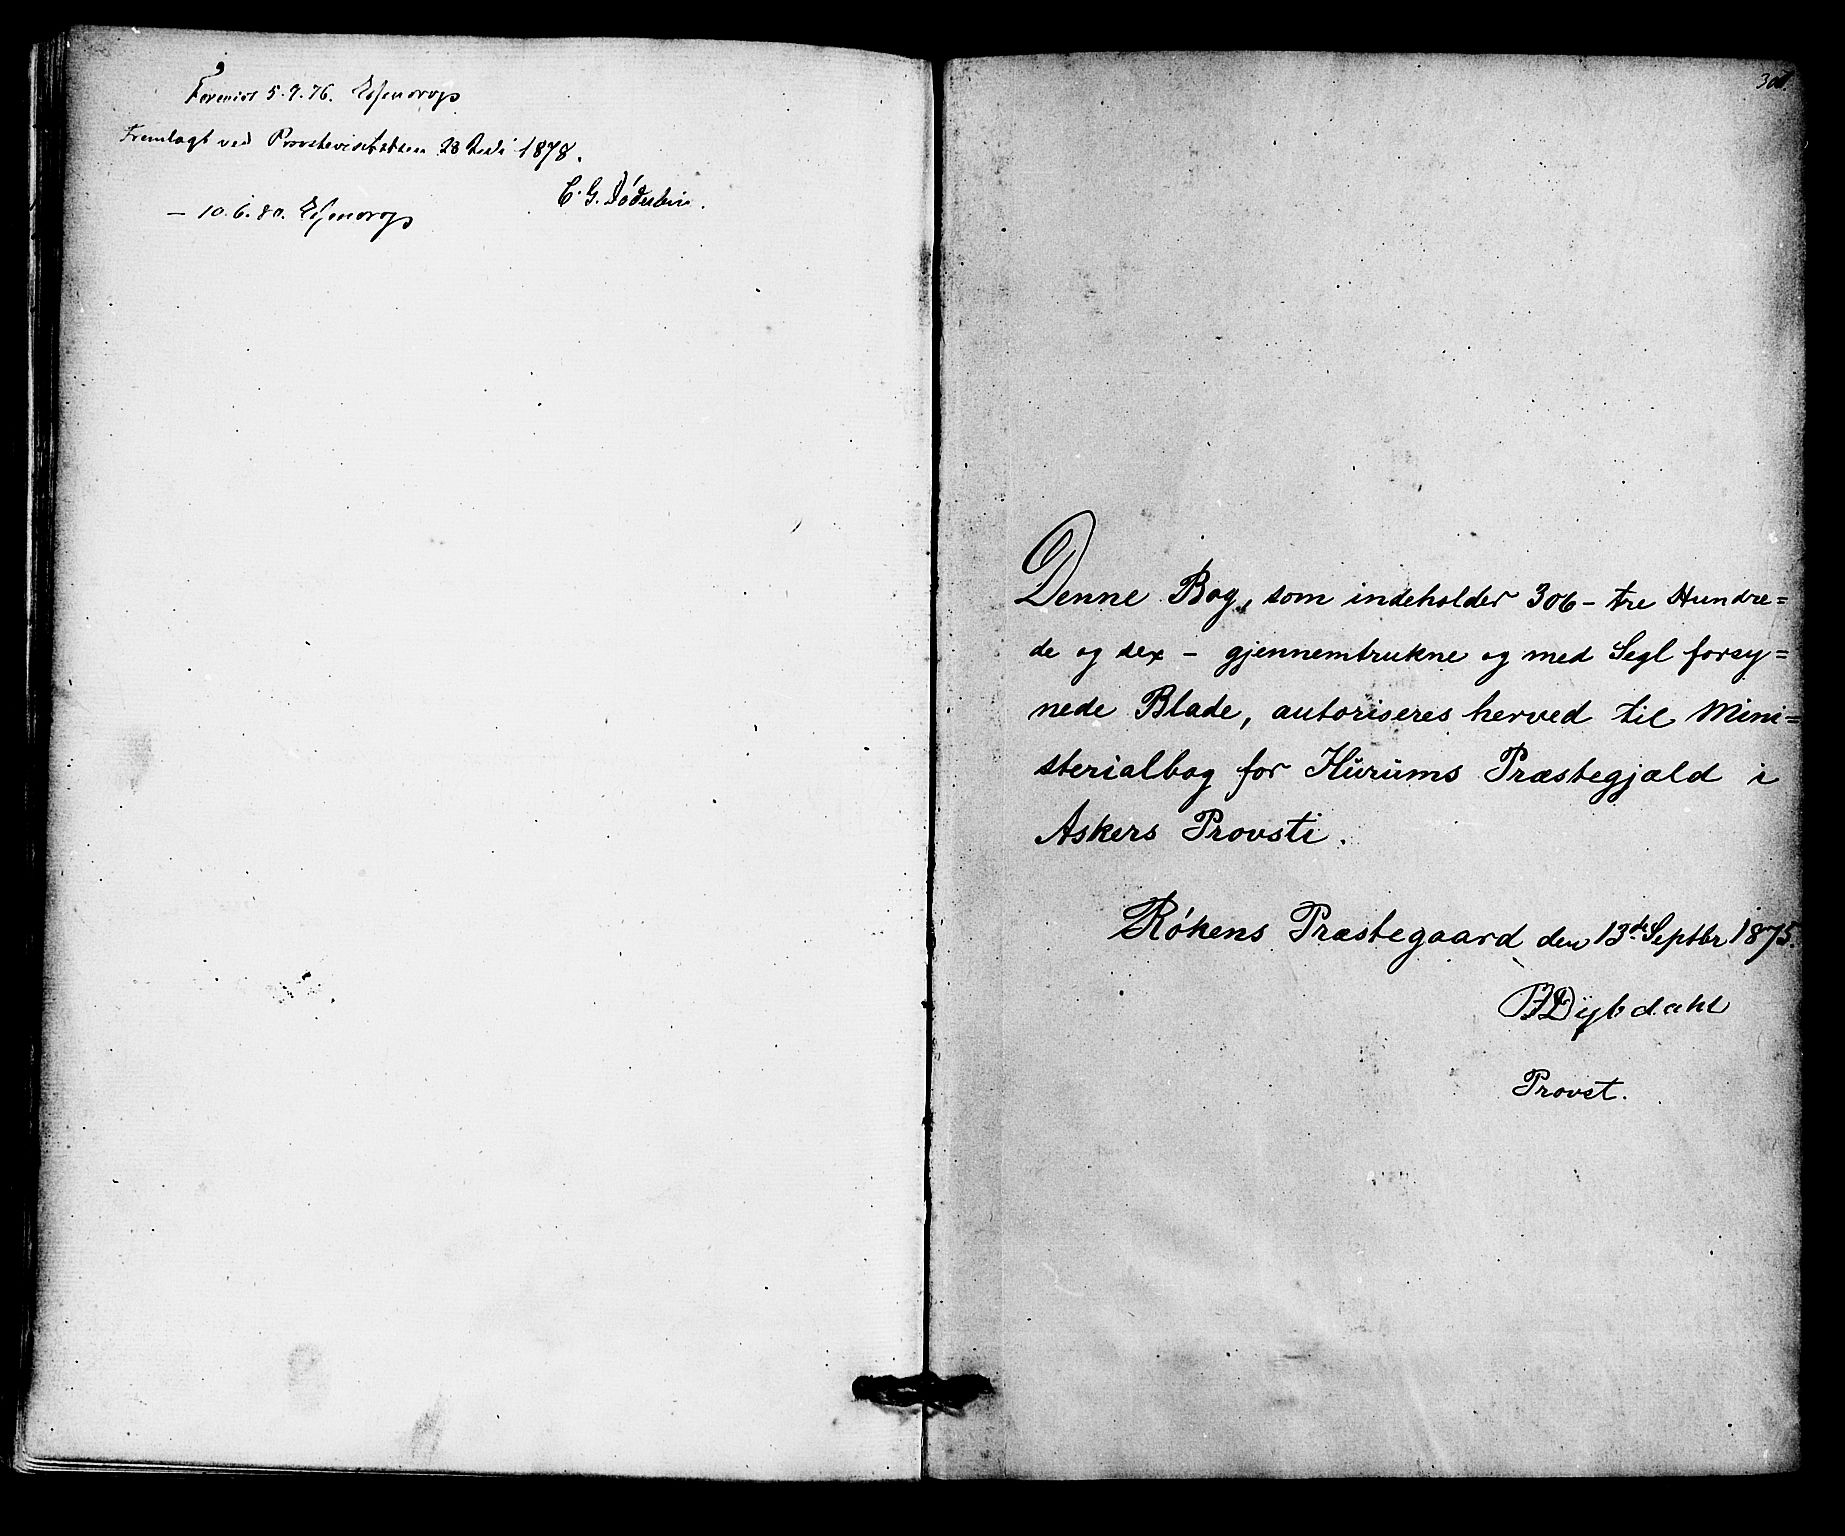 Forevist 5.9.76. Essendrop
Fremlagt ved Provstevisitatsen 28 Juli 1878.
C. G. Döderlein.
— 10.6.80. Essendrop
306.
Denne Bog, som indeholder 306 - tre Hundre=
de og sex - gjennemtrukne og med Segl forsy=
nede Blade, autoriseres herved til Mini=
sterialbog for Hurums Præstegjæld i
Askers Provsti.
Røkens Præstegaard den 13de Septbr 1875.
Dybdahl
Provst.